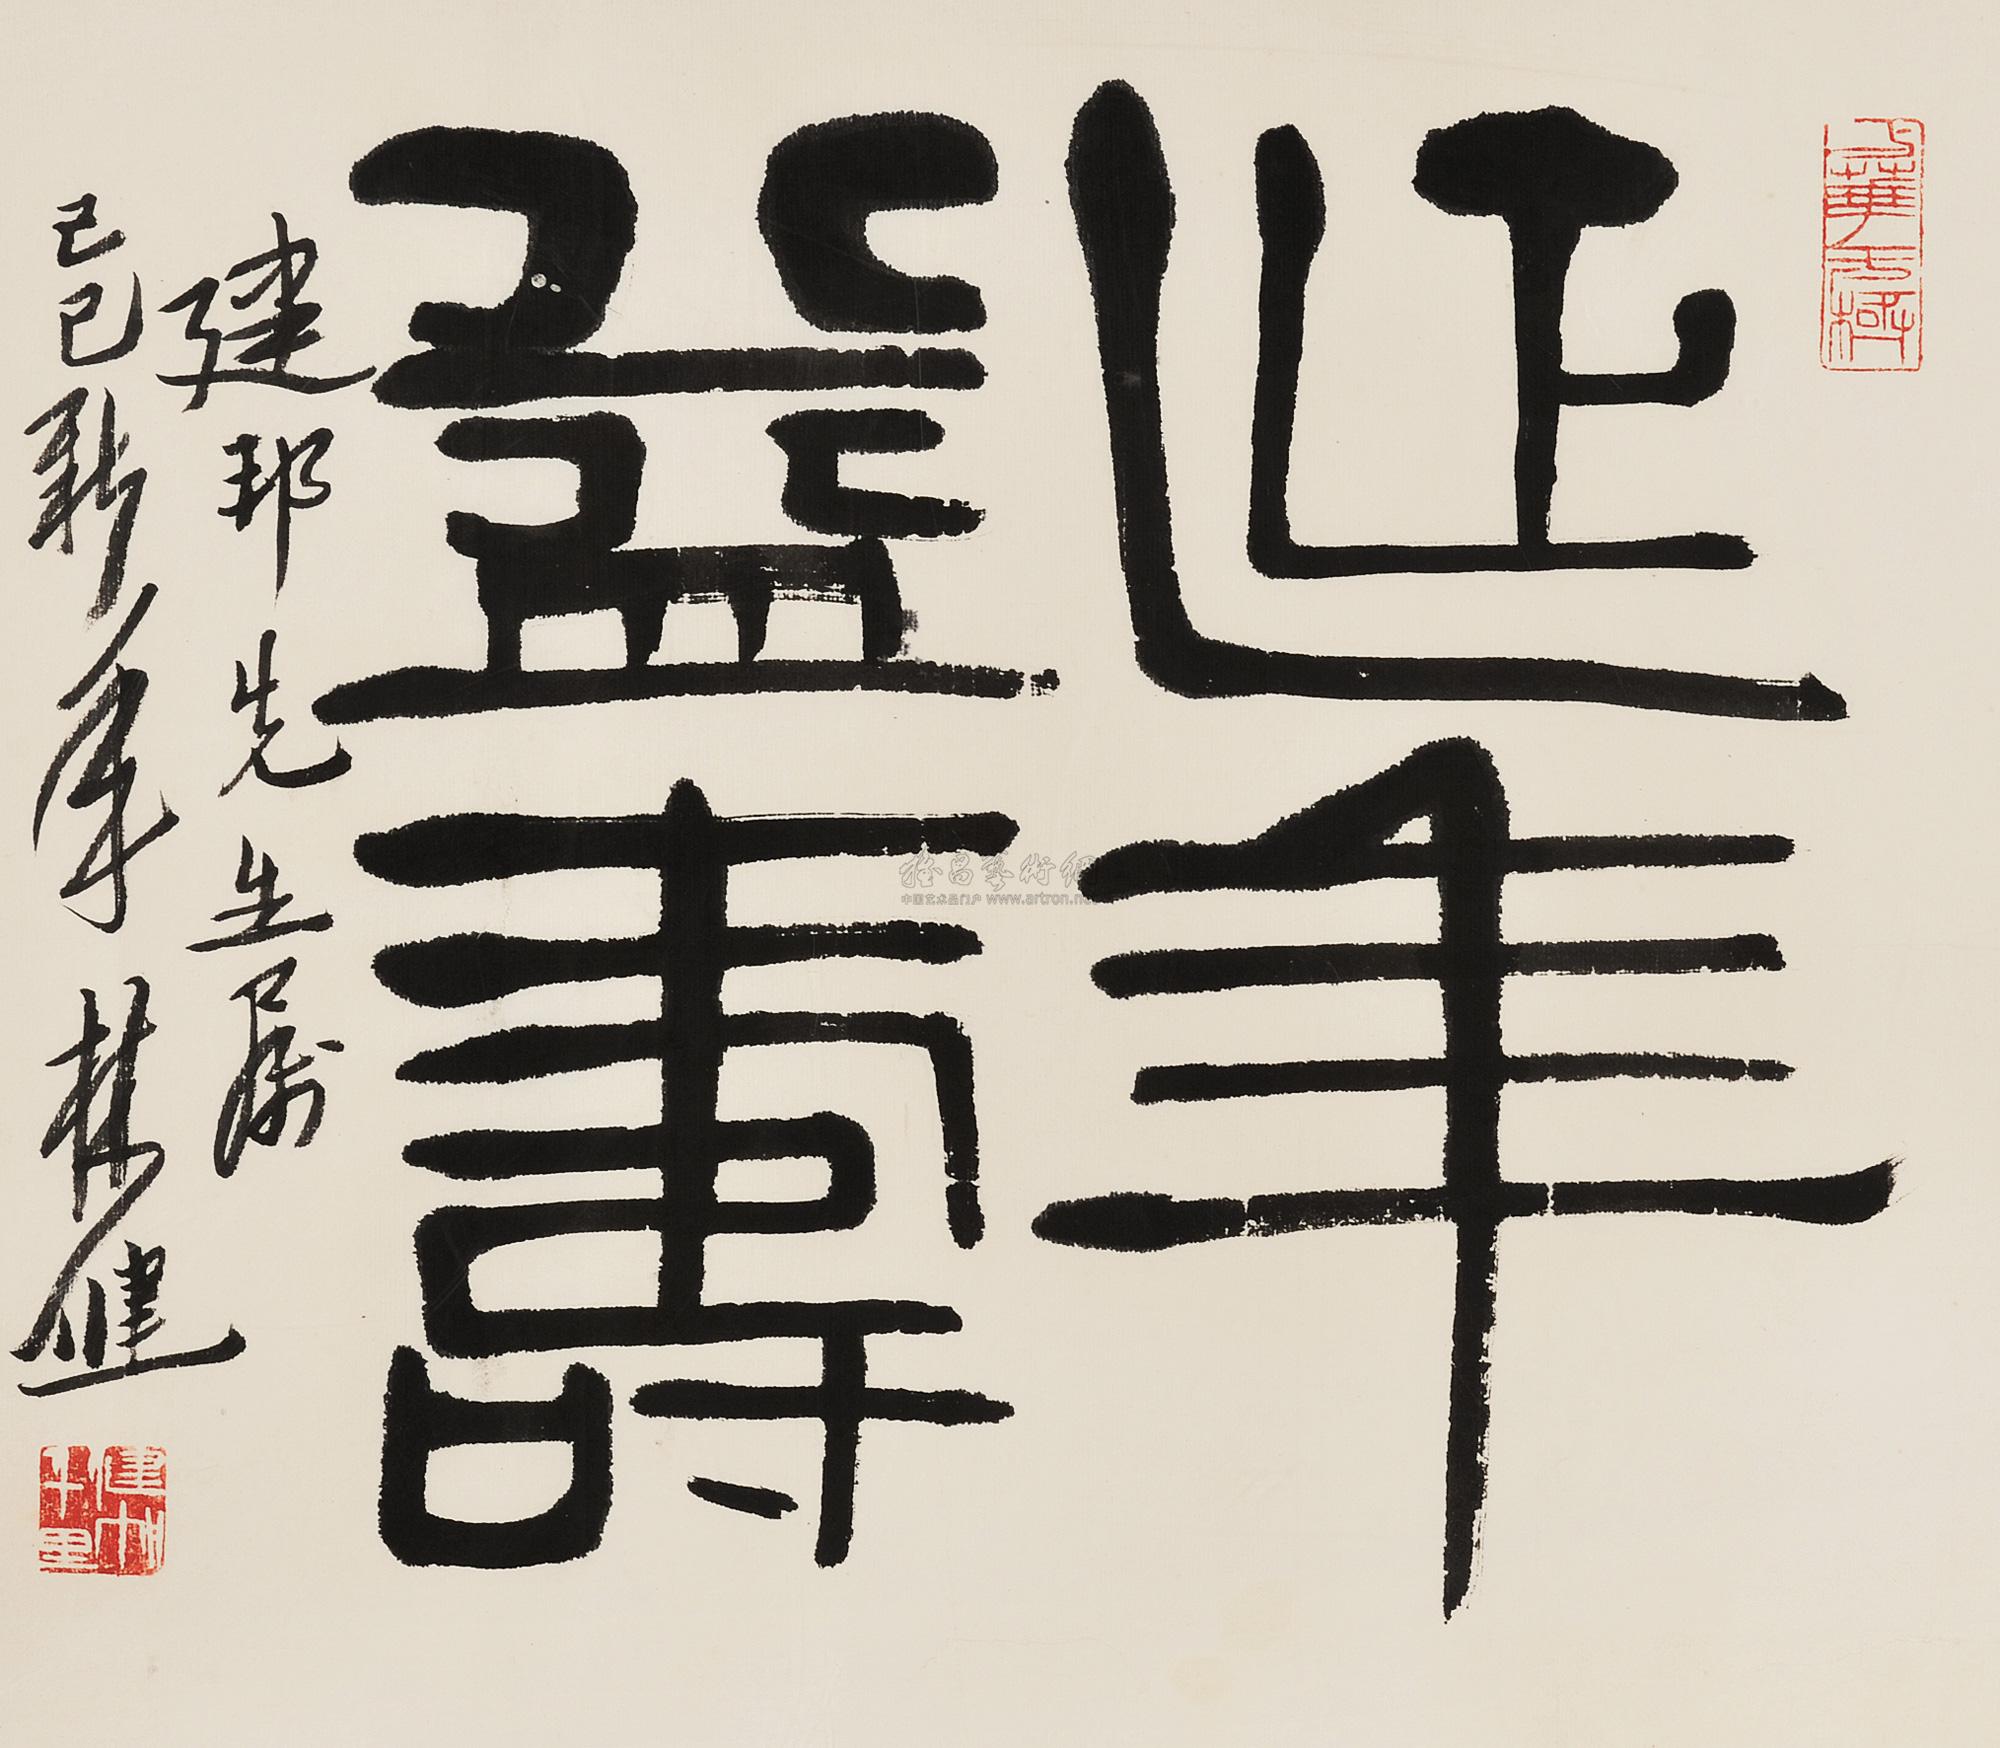 延年
益壽
建邦先生屬
己巳新年林健
雅昌藝術網
中国艺术品门户 www.artron.net